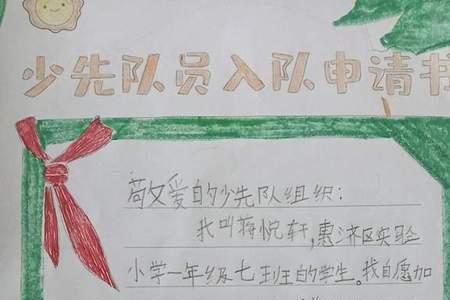 少先队员入队申请书
敬爱的少先队组织:
我叫蒋悦轩,惠济区实验
小学一年级七班的学生。我自愿加